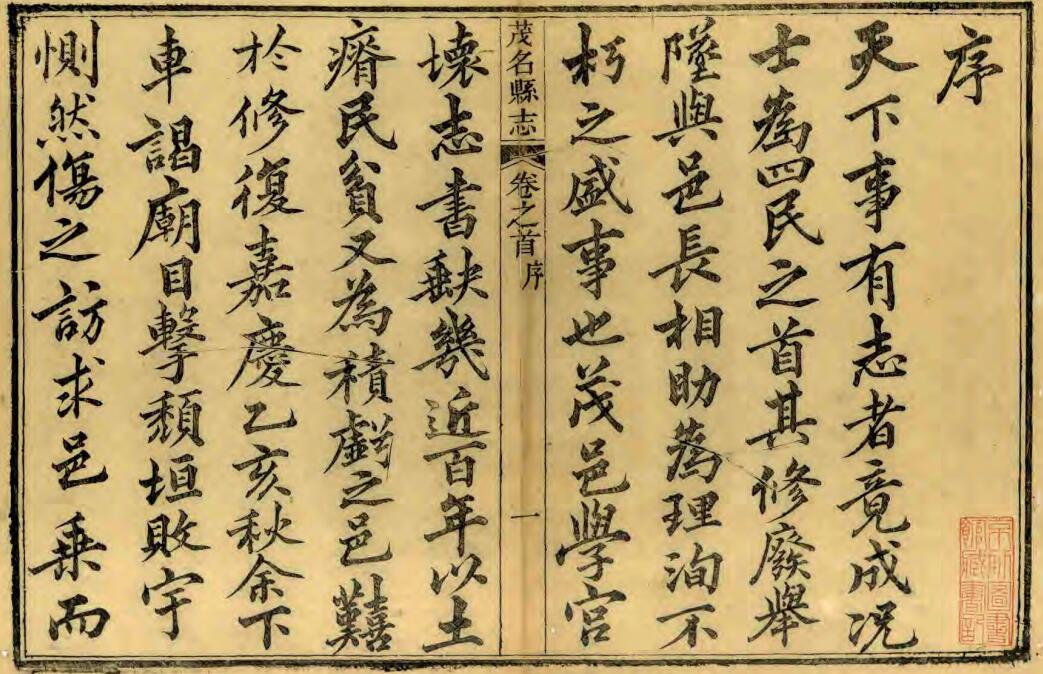 序
天下事有志者竟成况
士為四民之首其修廢舉
墜與邑長相助為理洵不
朽之盛事也茂邑學宫
茂名縣志 卷之首 序 一
壞志書缺幾近百年以土
瘠民貧又為積虧之邑難
於修復嘉慶乙亥秋余下
車謁廟目擊頽垣敗宇
惻然傷之訪求邑乗而